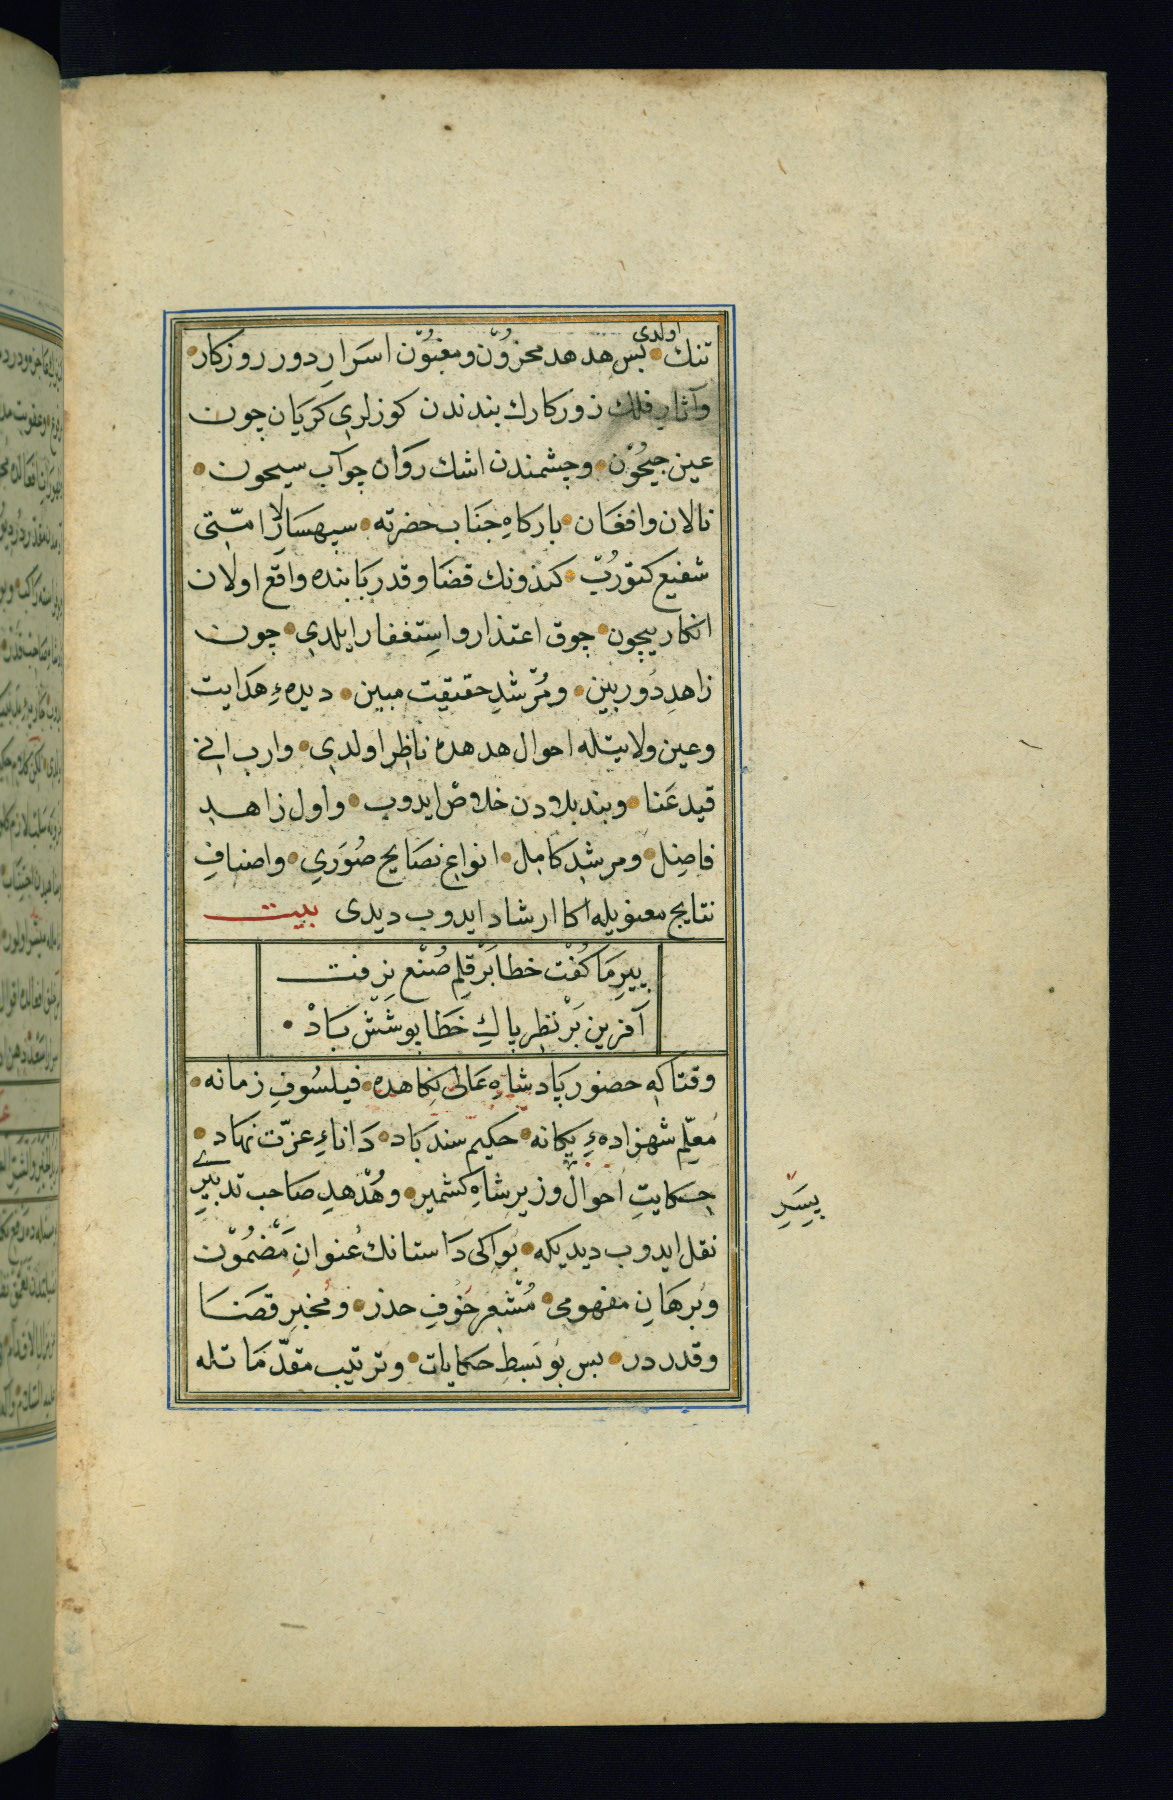 تنك اولدی • پس هدهد محزون و مغبون اسرار دور روزكار •
وآثار فلك زوركارك بندندن كوزلری كریان چون
عین جیحون • وچشمندن اشك روان چو آب سیحون •
نالان وافغان • باركاه جناب حضرته • سپهسالار امتی
شفیع كتورب • كندونك قضا وقدر یابنده واقع اولان
انكاریچون • چوق اعتذار واستغفار ایلدی • چون
زاهد دوربین • ومرشد حقیقت مبین • دیدهء هدایت
وعین ولایتله احوال هدهده ناظر اولدی • وارب انی
قید عنا • وبند بلادن خلاص ایدوب • واول زاهد
فاضل • ومرشد كامل • انواع نصایح صوری • واصناف
نتایج معنویله اكا ارشاد ایدوب دیدی بیت
پیر ما كفت خطا بر قلم صنع نرفت
آفرین بر نظر پاك خطا پوشش باد •
وقتاكه حضور پادشاه عالی نكاهده • فیلسوف زمانه •
معلم شهزادهء یكانه • حكیم سندباد • داناء عزت نهاد •
حكایت احوال وزیر شاه كشمیر • وهدهد صاحب تدبیری
نقل ایدوب دیدیكه • بو اكی داستانك عنوان مضمون
وبرهان مفهومی • مشعر خوف حذر • ومخبر قضا
وقدردر • پس بو بسط حكایات • وترتیب مقدماتله
پسر